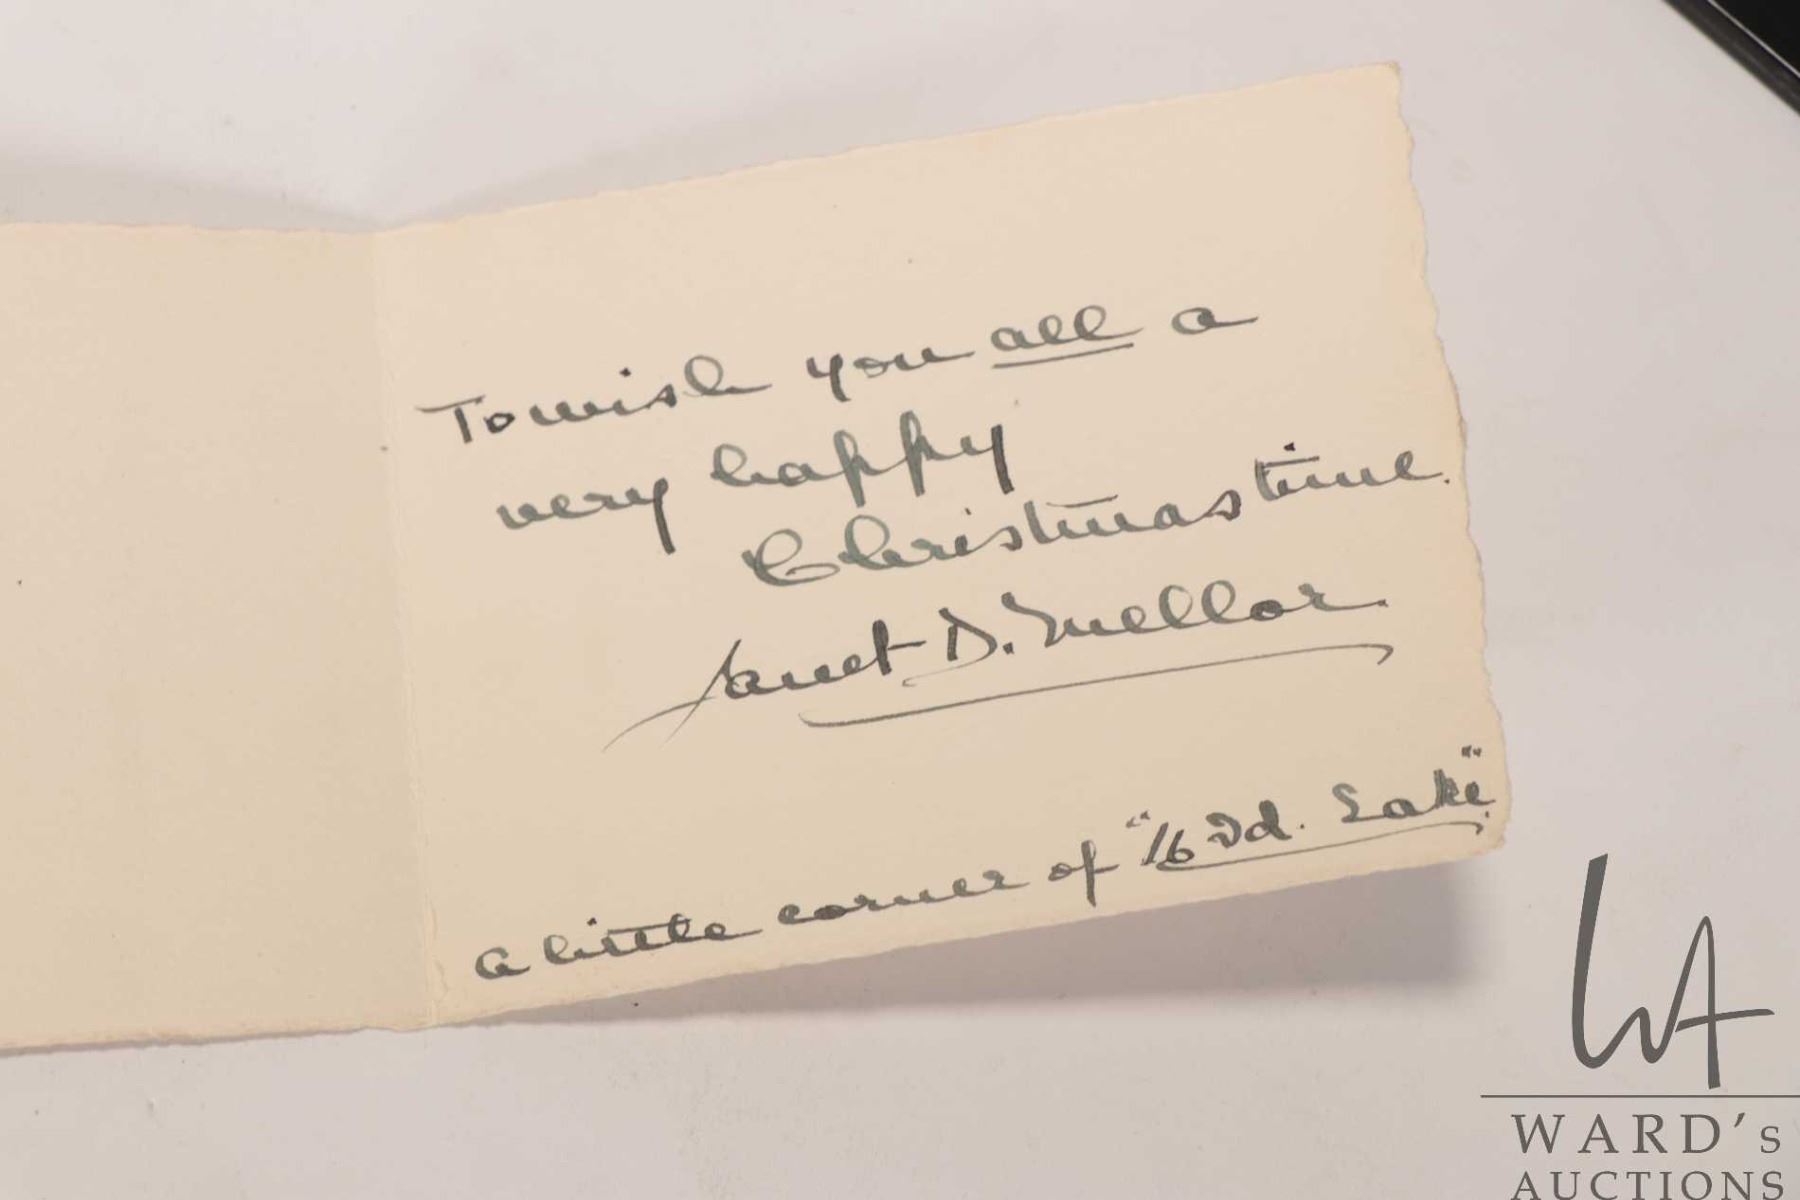 To wish you all a
very happy
Christmas time.
Janet D. Mellor.
a little corner of "16 Id. Lake"
WARD's
AUCTIONS